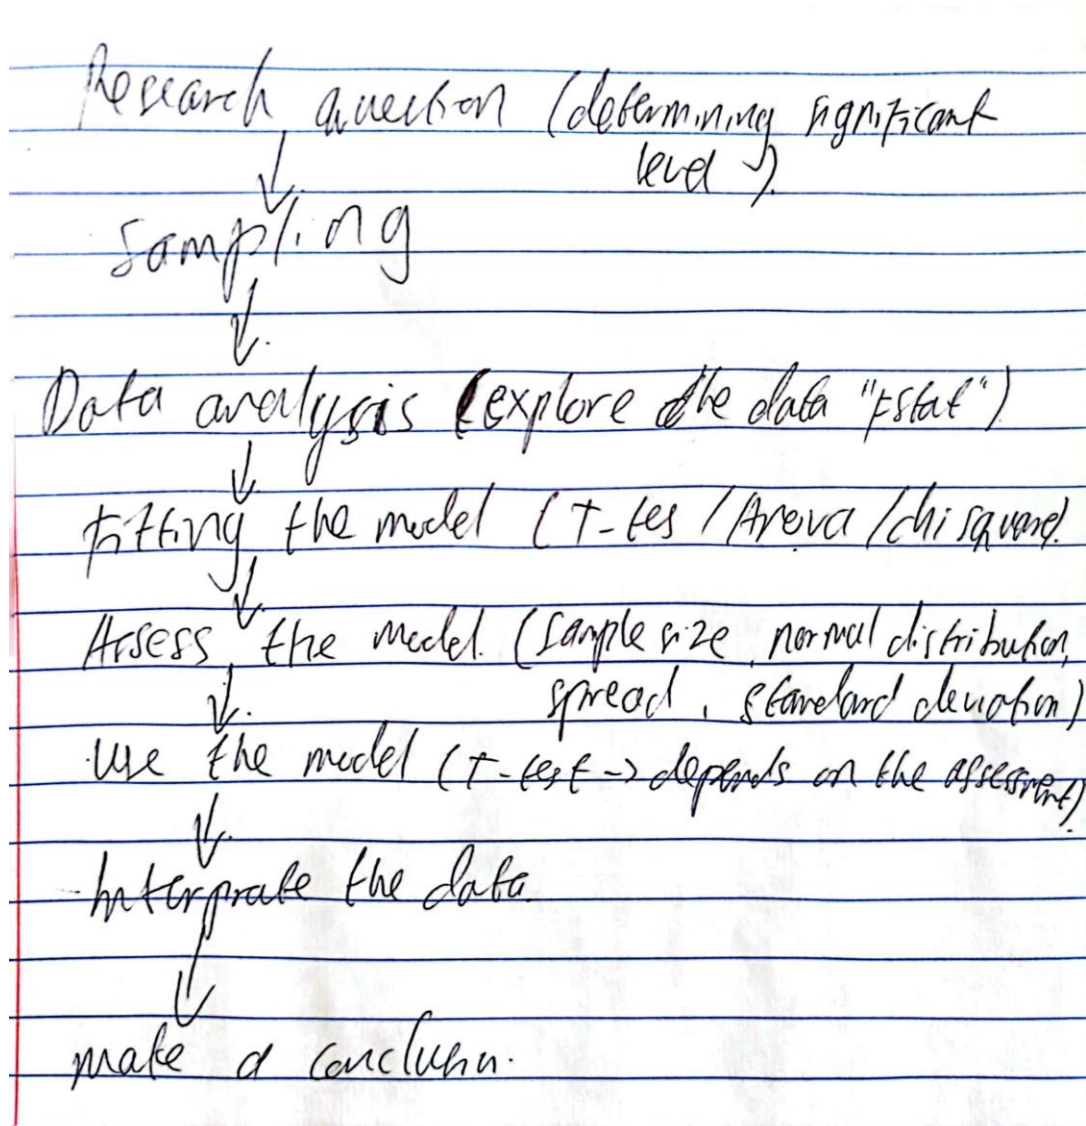 Research question (determining significant
level).
Sampling
Data analysis (explore the data "Fstat")
Fitting the model (T-tes / Anova / chi square).
Assess the model. (sample size, normal distribution,
spread, standard deviation)
Use the model (T-test -> depends on the assessment).
- Interprate the data.
make a conclusion.